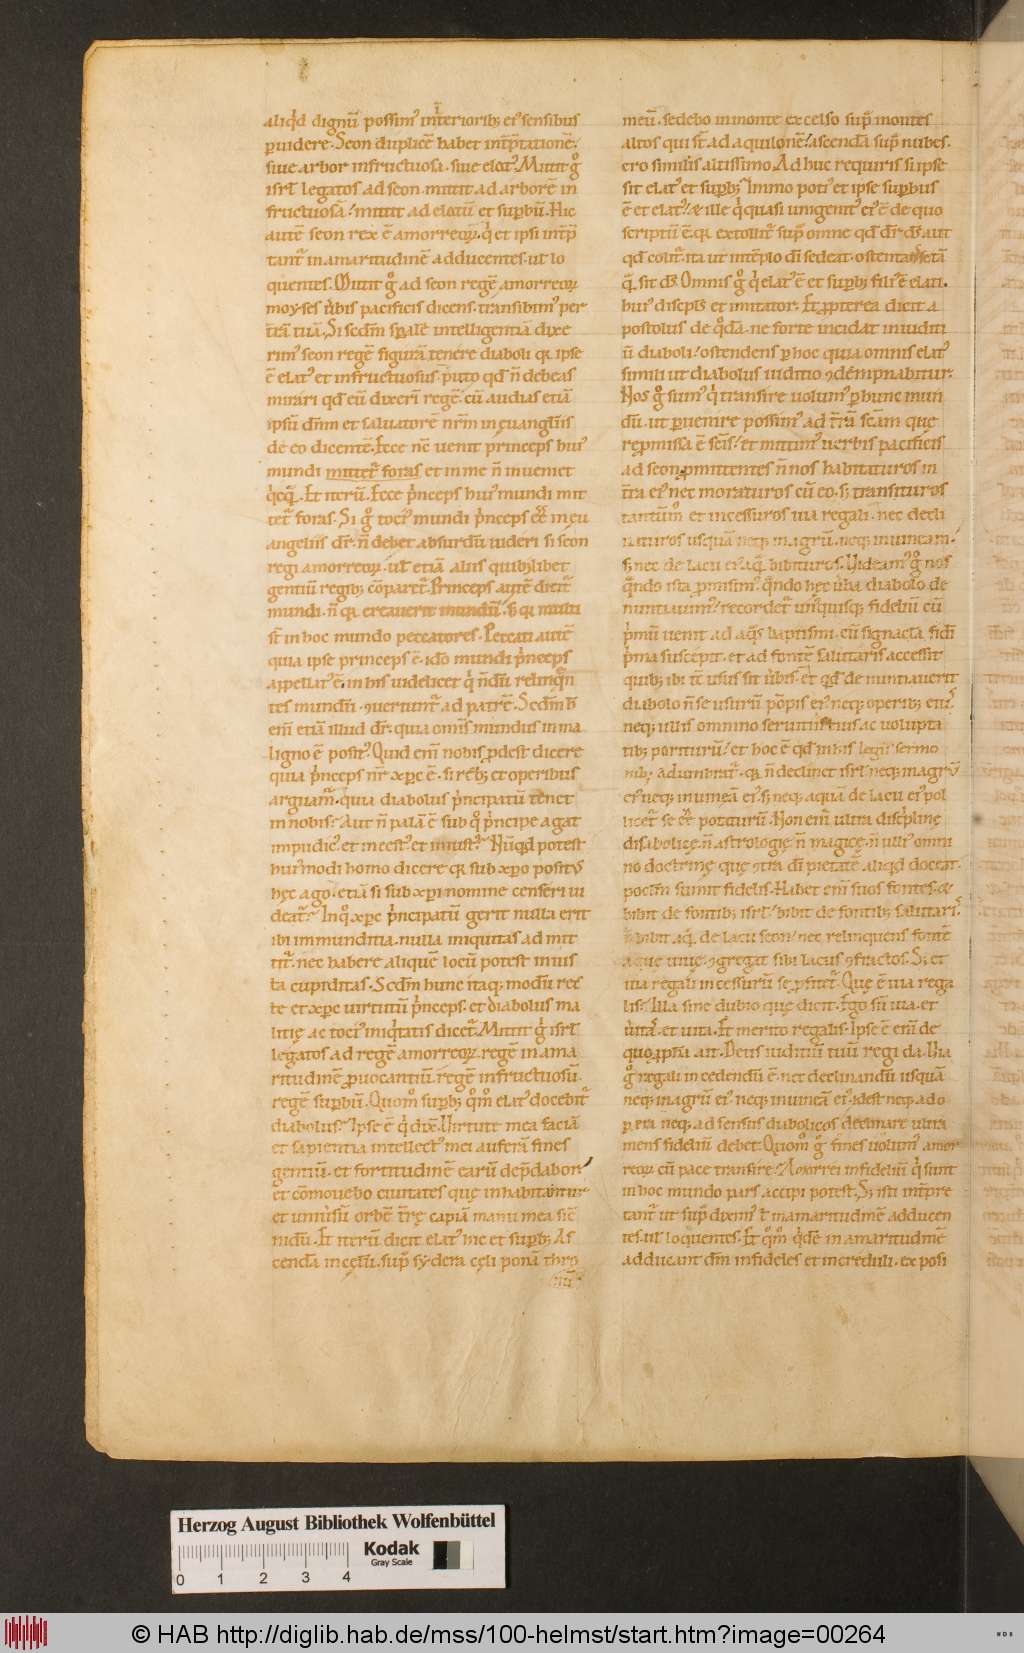 aliqd dignū possim' interiorib; ei' sensibus
puidere. Seon duplicē habet intp̄tationē:
siue arbor infructuosa. siue elat'. Mittit gͦ
isrł legatos ad seon. mittit ad arborē in
fructuosā. mittit ad elatū et supbū. Hic
autē seon rex ē amorreoꝝ. qi et ipsi intp̄
tant̄ in amaritudinē adducentes. ut lo
quentes. Mittit gͦ ad seon regē amorreoꝝ
moyses ūbis pacificis dicens. transibim' per
t̄rā tuā. Si scdm̄ sp̄alē intelligentiā dixe
rim' seon regē figurā tenere diaboli qꝛ ipse
ē elat' et infructuosus. puto qd n̄ debeas
mirari qd eū dixeri' regē. cū audias etiā
ipsū dn̄m et saluatorē nr̄m in euanglіis
de eo dicentē. Ecce nc̄ uenit princeps hui'
mundi mittet̄ foras et in me n̄ inueniet
qcq̄. Et iterū. Ecce p̄nceps hui' mundi mit
tet̄ foras. Si gͦ toci' mundi p̄nceps ēē in eu
angeliis dr̄. n̄ debet absurdū uideri si seon
regi amorreoꝝ. ut etiā aliis quib;libet
gentiū regib; cōparet̄. Princeps autē dicit̄
mundi. n̄ qꝛ creauerit mundū. s; qꝛ multi
st̄ in hoc mundo peccatores. Peccati autē
quia ipse princeps ē. ido mundi p̄nceps
appellat' ē. in his uidelicet qi n̄dū relinqn̄
tes mundū. ꝯuertunt̄ ad patrē. Scdm̄ h̄
enī etiā illud dr̄. quia omīs mundus in ma
ligno ē posit'. Quid enī nobis pdest dicere
quia p̄nceps nr̄ xp̄c ē. si reb; et operibus
arguam̄. quia diabolus p̄ncipatū tenet
in nobis? Aut n̄ palā ē sub qͦ p̄ncipe agat
impudic' et incest' et iniust'? Nūqd potest
hui'modi homo dicere qꝛ sub xp̄o posit'
hęc ago. etiā si sub xp̄i nomine censeri ui
deat̄? In qͦ xp̄c p̄ncipatū gerit nulla erit
ibi immunditia. nulla iniquitas admit
tit̄. nec habere aliquē locū potest inius
ta cupiditas. Scdm̄ hunc itaq; modū rec
te et xp̄c uirtutū p̄nceps. et diabolus ma
litię ac toci' iniqtatis dicet̄. Mittit gͦ isrł
legatos ad regē amorreoꝝ. regē in ama
ritudinē puocantiū. regē infructuosū.
regē supbū. Quom̊ supb; qm̊ elat' docebit̄
diabolus? Ipse ē qi dix̄. Virtute mea faciā
et sapientia intellect' mei auferā fines
gentiū. et fortitudinē earū dep̄dabor.
et cōmouebo ciuitates quę inhabitantur.
et uniūsū orbē t̄rę capiā manu mea sic̄
nidū. Et iterū dicit elat' hic et supb; As
cendā in cęlū. sup̄ sydera cęli ponā thro
nū
meū. sedebo in monte excelso sup̄ montes
altos qui st̄ ad aquilonē. ascendā sup̄ nubes.
ero similis altissimo. Adhuc requiris si ipse
sit elat' et supb;? Immo poti' et ipse supbus
ē et elat'. & ille qi quasi unigenit' ei' ē de quo
scriptū ē. qꝛ extollit̄ sup̄ omne qd dr̄ ds̄ aut
qd colit̄. ita ut in tēplo dī sedeat. ostentans se tā
q̄ sit ds̄. Omnis gͦ qi elat' ē et supb; fili' ē elati.
hui' discipls et imitator. Et ppterea dicit a
postolus de qͦdā. ne forte incidat in iuditi
ū diaboli. ostendens p hoc quia omnis elat'
simili ut diabolus iuditio ꝯdēmpnabitur.
Nos gͦ sum' qi transire uolum' p hunc mun
dū. ut puenire possim' ad t̄rā scām que
repmissa ē scīs. et mittim' uerbis pacificis
ad seon. pmittentes n̄ nos habitaturos in
t̄ra ei' nec moraturos cū eo. s; transituros
tantūm̊ et incessuros uia regali. nec decli
naturos usquā neq; in agrū. neq; in uineam.
s; nec de lacu ei' aq̄ bibituros. Videam' gͦ nos
qn̄do ista pmisim'. qn̄do hęc ūba diabolo de
nuntiauim'. recordet̄ un'quisq; fideliū cū
p̄mū uenit ad aqs baptismi. cū signacła fidī
p̄ma suscepit. et ad fontē salutaris accessit
quib; ibi tc̄ usus sit ūbis. et qd denuntiauerit
diabolo. n̄ se usurū pōpis ei'. neq; operib; ei'.
neq; illis omnino seruitutius. ac uolupta
tib; pariturū. et hoc ē qd in his legis sermo
nib; adumbrat̄. qꝛ n̄ declinet isrł neq; in agrū
ei' neq; in uineā ei'. s; neq; aquā de lacu ei' pol
licet̄ se ēē potaturū. Non enī ultra discipline
diabolicę. n̄ astrologię n̄ magicę. n̄ ulli' omni
no doctrinę quę ꝯtra dī pietatē aliqd doceat.
poclm̄ sumit fidelis. Habet enī suos fontes. &
bibit de fontib; isrł. bibit de fontib; salutaris.
n̄ bibit aq̄ de lacu seon. nec relinquens fontē
aquę uiuę. ꝯgregat sibi lacus ꝯfractos. S; et
uia regali incessurū se pfitet̄. Quę ē uia rega
lis? Illa sine dubio quę dicit. Ego sū uia. et
ūitas. et uita. Et merito regalis. Ipse ē enī de
quo ppha ait. Deus iuditiū tuū regi da. Via
gͦ regali incedendū ē. nec declinandū usquā
neq; in agrū ei'. neq; in uineā ei'. idest neq; ad o
pera neq; ad sensus diabolicos declinare ultra
mens fideliū debet. Quom̊ gͦ fines uolum' amor
reoꝝ cū pace transire? Amorrei infideliū qi sunt
in hoc mundo pars accipi potest. S; isti intp̄re
tant̄ ut sup̄ dixim' ł in amaritudinē adducen
tes. ut loquentes. Et qm̊ qdē in amaritudinē
adducant dm̄ infideles et increduli. ex posi
Herzog August Bibliothek Wolfenbüttel
Kodak
Gray Scale
0 1 2 3 4
© HAB http://diglib.hab.de/mss/100-helmst/start.htm?image=00264